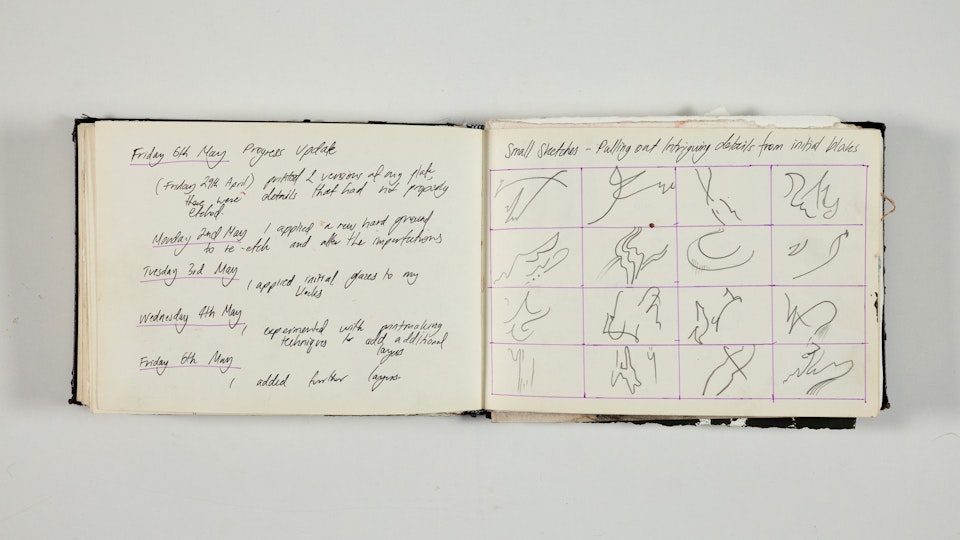 Friday 6th May Progress Update
(Friday 29th April) printed 2 versions of my plate
there were details that had not properly
etched.
Monday 2nd May I applied a new hard ground
to re-etch and alter the imperfections
Tuesday 3rd May
I applied initial glazes to my
blocks
Wednesday 4th May
I experimented with printmaking
techniques to add additional
layers
Friday 6th May
I added further layers
Small Sketches - Pulling out Intriguing details from initial blocks